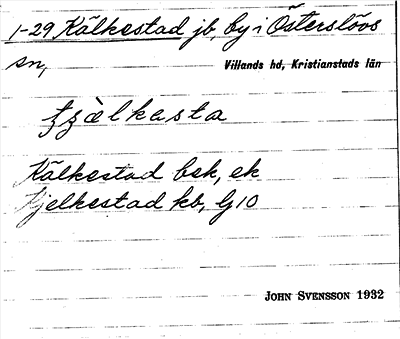 1-29 Kälkestad jb, by i Österslövs
sn, Villands hd, Kristianstads län
tjälkasta
Kälkestad bsk, ek
Kjelkestad kb, Gj 10
JOHN SVENSSON 1932